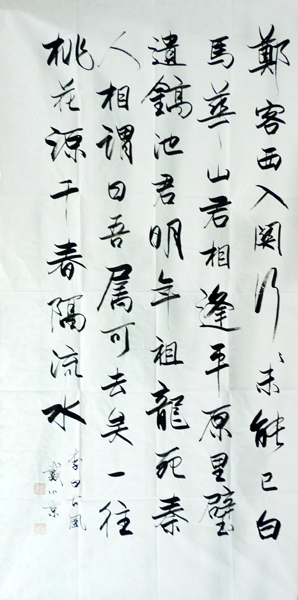 鄭客西入關行〻未能已白
馬華山君相逢平原里璧
遺鎬池君明年祖龍死秦
人相謂曰吾属可去矣一往
桃花源千春隔流水
李白古風
戴小京